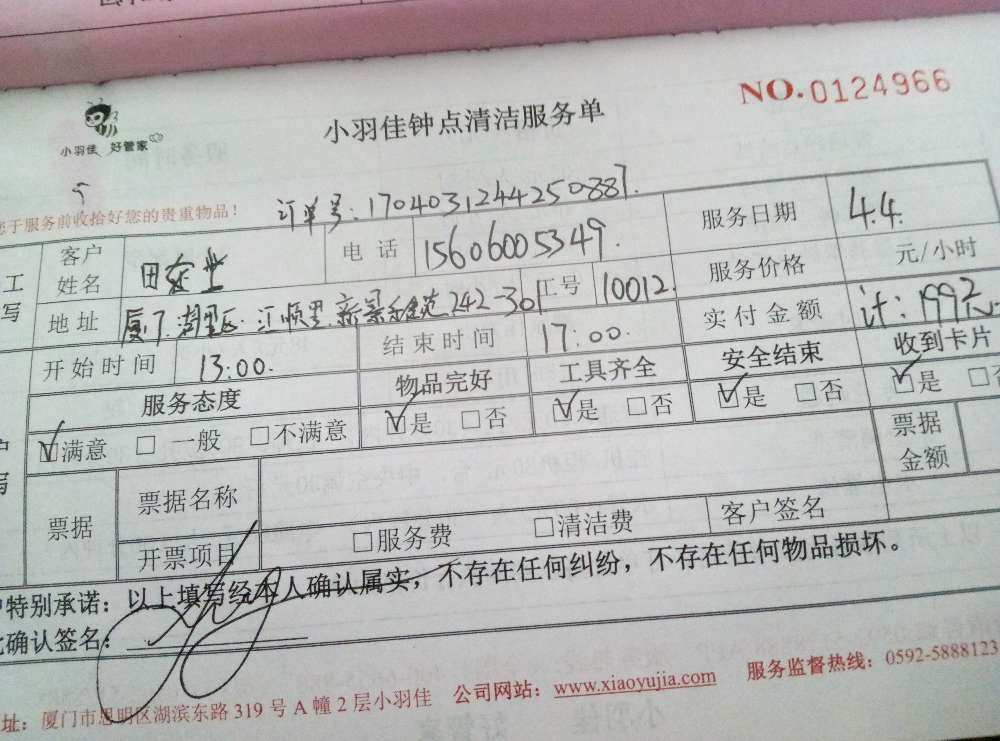 NO.0124966
小羽佳 好管家
小羽佳钟点清洁服务单
您于服务前收拾好您的贵重物品!
订单号:1704031244250887.
客户姓名 田 电话 15606005349. 服务日期 4.4.
地址 厦门.湖里区.江顺里.新景 242-301 工号 10012. 服务价格 元/小时
开始时间 13:00. 结束时间 17:00. 实付金额 计:199元
服务态度 物品完好 工具齐全 安全结束 收到卡片
☑满意 □一般 □不满意 ☑是 □否 ☑是 □否 ☑是 □否 ☑是 □否
票据 票据名称 票据金额
开票项目 □服务费 □清洁费 客户签名
特别承诺:以上填写经本人确认属实,不存在任何纠纷,不存在任何物品损坏。
确认签名:
址:厦门市思明区湖滨东路 319 号 A 幢 2 层小羽佳 公司网站:www.xiaoyujia.com 服务监督热线:0592-5888123